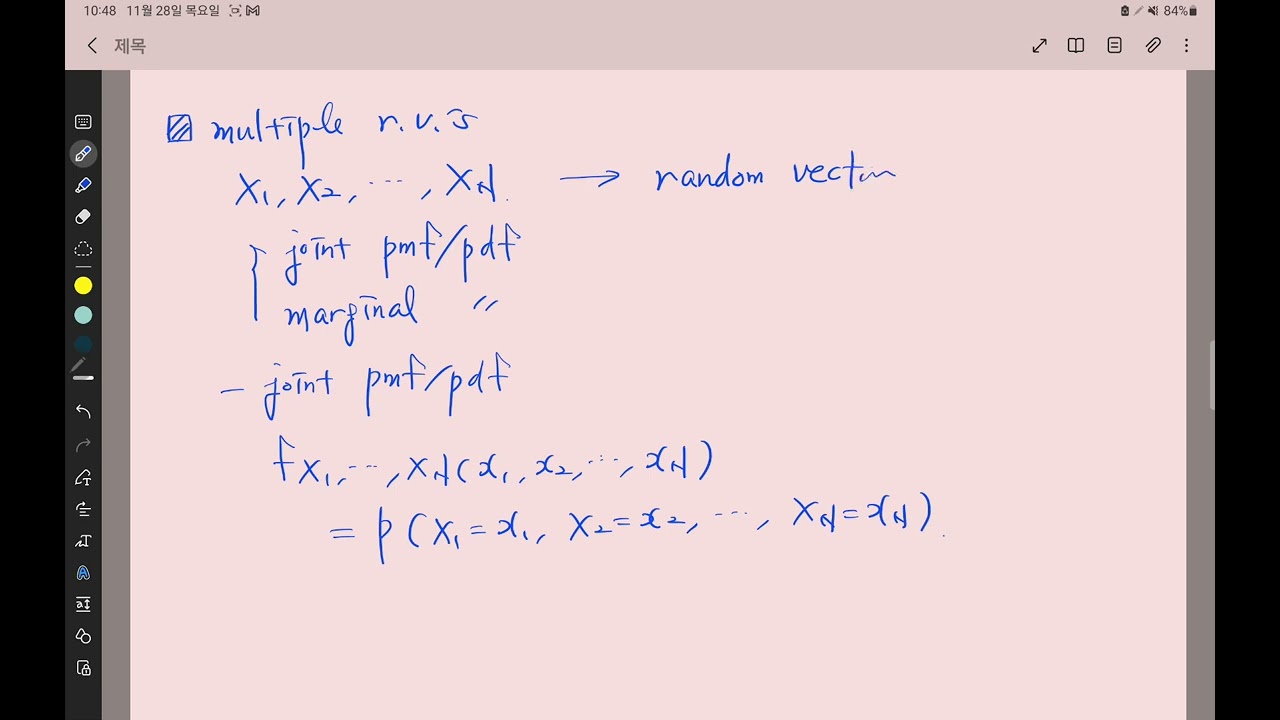 10:48 11월 28일 목요일 84%
제목
multiple r.v.s
X₁, X₂, ⋯, X_N. → random vector
{ joint pmf/pdf
marginal 〃
- joint pmf/pdf
f_{X₁,⋯,X_N}(x₁, x₂, ⋯, x_N)
= p(X₁=x₁, X₂=x₂, ⋯, X_N=x_N).